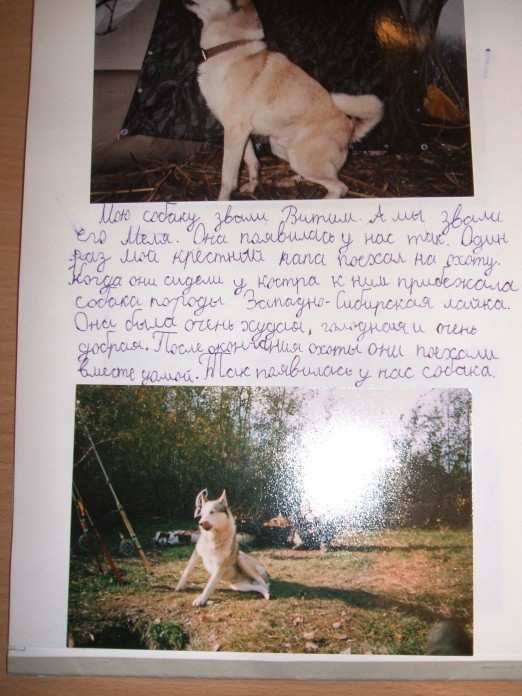 Мою собаку звали Витим. А мы звали
его Меля. Она появилась у нас так. Один
раз мой крёстный папа поехал на охоту.
Когда они сидели у костра к ним прибежала
собака породы Западно-Сибирская лайка.
Она была очень худая, голодная и очень
добрая. После окончания охоты они поехали
вместе домой. Так появилась у нас собака.